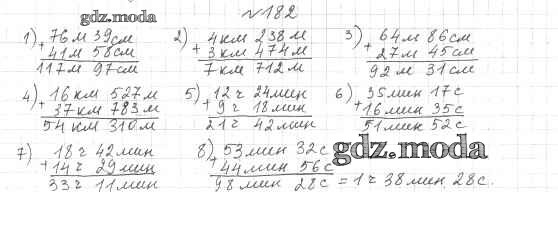 gdz.moda
№182
1) 76м 39см 2) 4км 238м 3) 64м 86см
+ 41м 58см + 3км 474м + 27м 45см
117м 97см 7км 712м 92м 31см
4) 16км 527м 5) 12ч 24мин 6) 35мин 17с
+ 37км 783м + 9ч 18мин + 16мин 35с
54км 310м 21ч 42мин 51мин 52с
7) 18ч 42мин 8) 53мин 32с
+ 14ч 29мин + 44мин 56с
33ч 11мин 98мин 28с = 1ч 38мин 28с.
gdz.moda